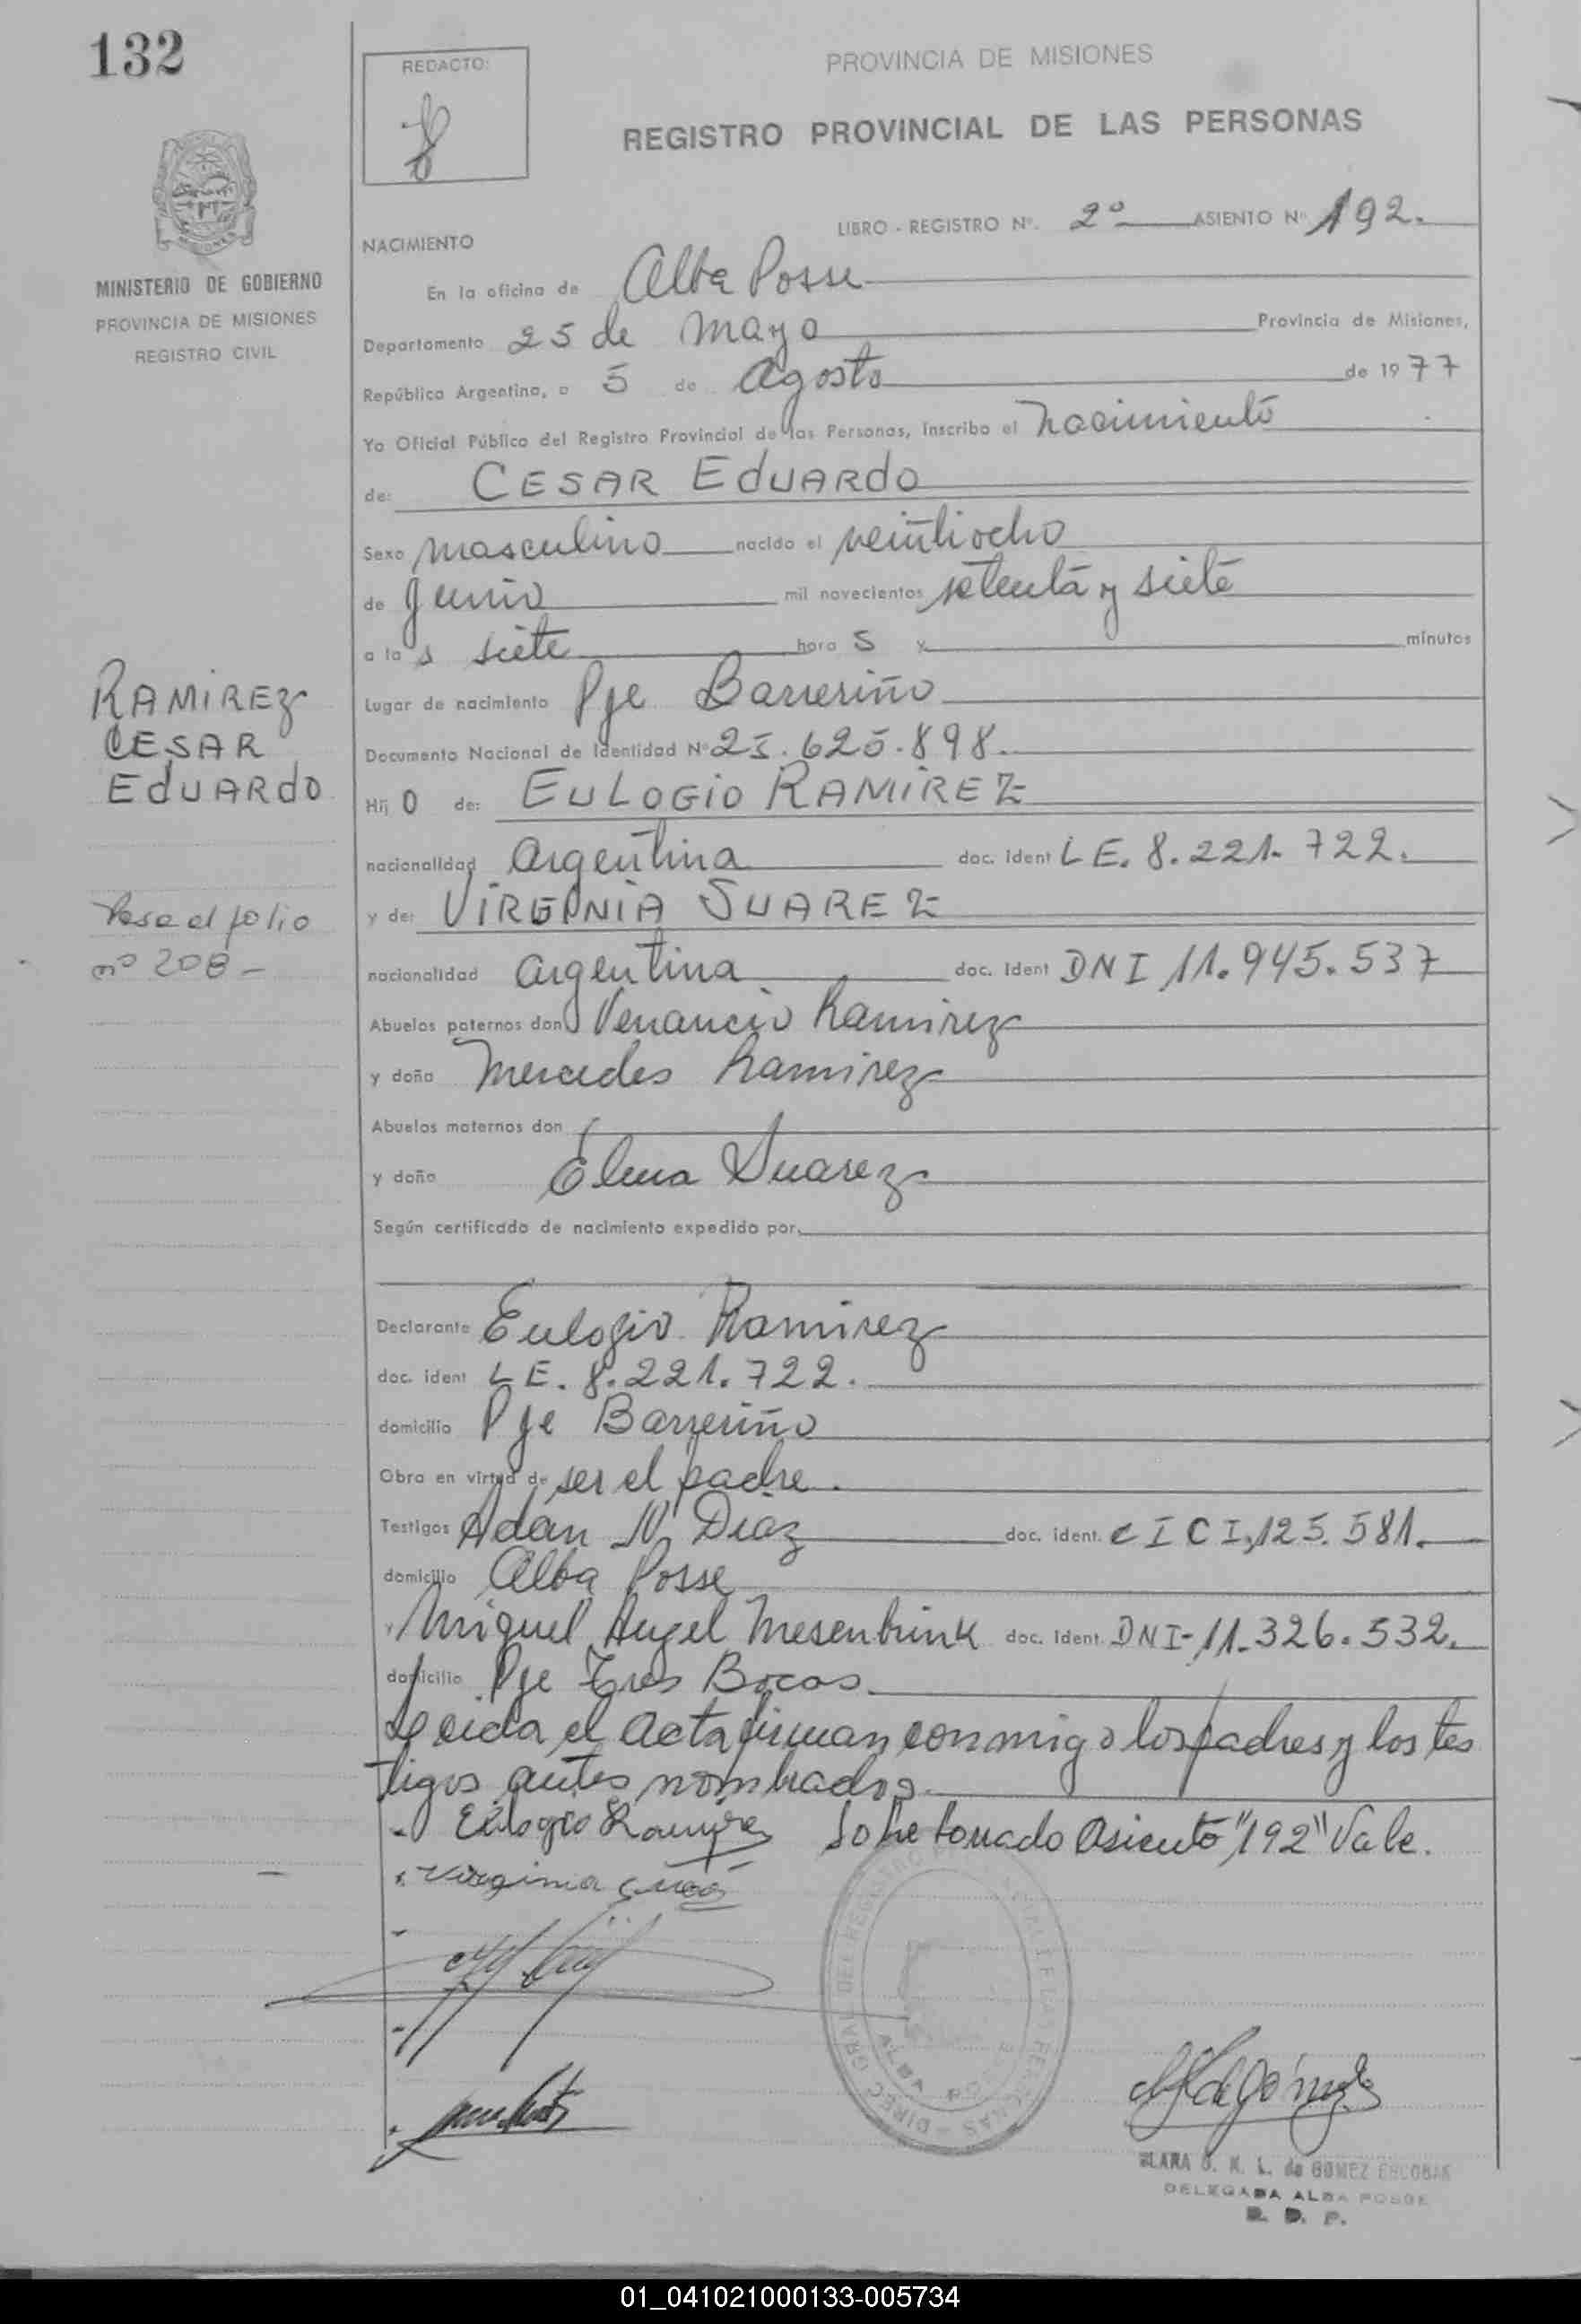 132
REDACTO:
PROVINCIA DE MISIONES
REGISTRO PROVINCIAL DE LAS PERSONAS
LIBRO - REGISTRO Nº. 2º ASIENTO Nº 192.
NACIMIENTO
MINISTERIO DE GOBIERNO
PROVINCIA DE MISIONES
REGISTRO CIVIL
En la oficina de Alba Posse
Departamento 25 de Mayo Provincia de Misiones,
República Argentina, a 5 de Agosto de 1977
Yo Oficial Público del Registro Provincial de las Personas, inscribo el nacimiento
de: CESAR EDUARDO
Sexo masculino nacido el veintiocho
de Junio mil novecientos setenta y siete
a la s siete hora s y minutos
Lugar de nacimiento Pje Barreriño
Documento Nacional de Identidad Nº 25.625.898.
RAMIREZ
CESAR
EDUARDO
Hij o de: EULOGIO RAMIREZ
nacionalidad Argentina doc. ident LE. 8.221.722.
y de: VIRGINIA SUAREZ
Pasa al folio
nº 208-
nacionalidad Argentina doc. ident DNI 11.945.537
Abuelos paternos don Venancio Ramirez
y doña Mercedes Ramirez
Abuelos maternos don
y doña Elena Suarez
Según certificado de nacimiento expedido por.
Declarante Eulogio Ramirez
doc. ident LE. 8.221.722.
domicilio Pje Barreriño
Obra en virtud de ser el padre.
Testigos Adan N. Diaz doc. ident. CI 125.581.
domicilio Alba Posse
y Miguel Angel Mesenbrink doc. ident. DNI-11.326.532.
domicilio Pje Tres Bocas.
Leida el acta firman conmigo los padres y los tes
tigos antes nombrados.
Eulogio Ramirez Sobre borrado Asiento "192" Vale.
Virginia
ALBA POSSE
CLARA de GOMEZ ESCOBAR
DELEGADA ALBA POSSE
01_041021000133-005734